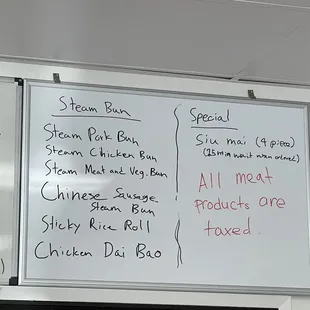 Steam Bun
Steam Pork Bun
Steam Chicken Bun
Steam Meat and Veg. Bun
Chinese Sausage
Steam Bun
Sticky Rice Roll
Chicken Dai Bao
Special
Siu mai (4 piece)
(15 min wait when ordered)
All meat
products are
taxed.